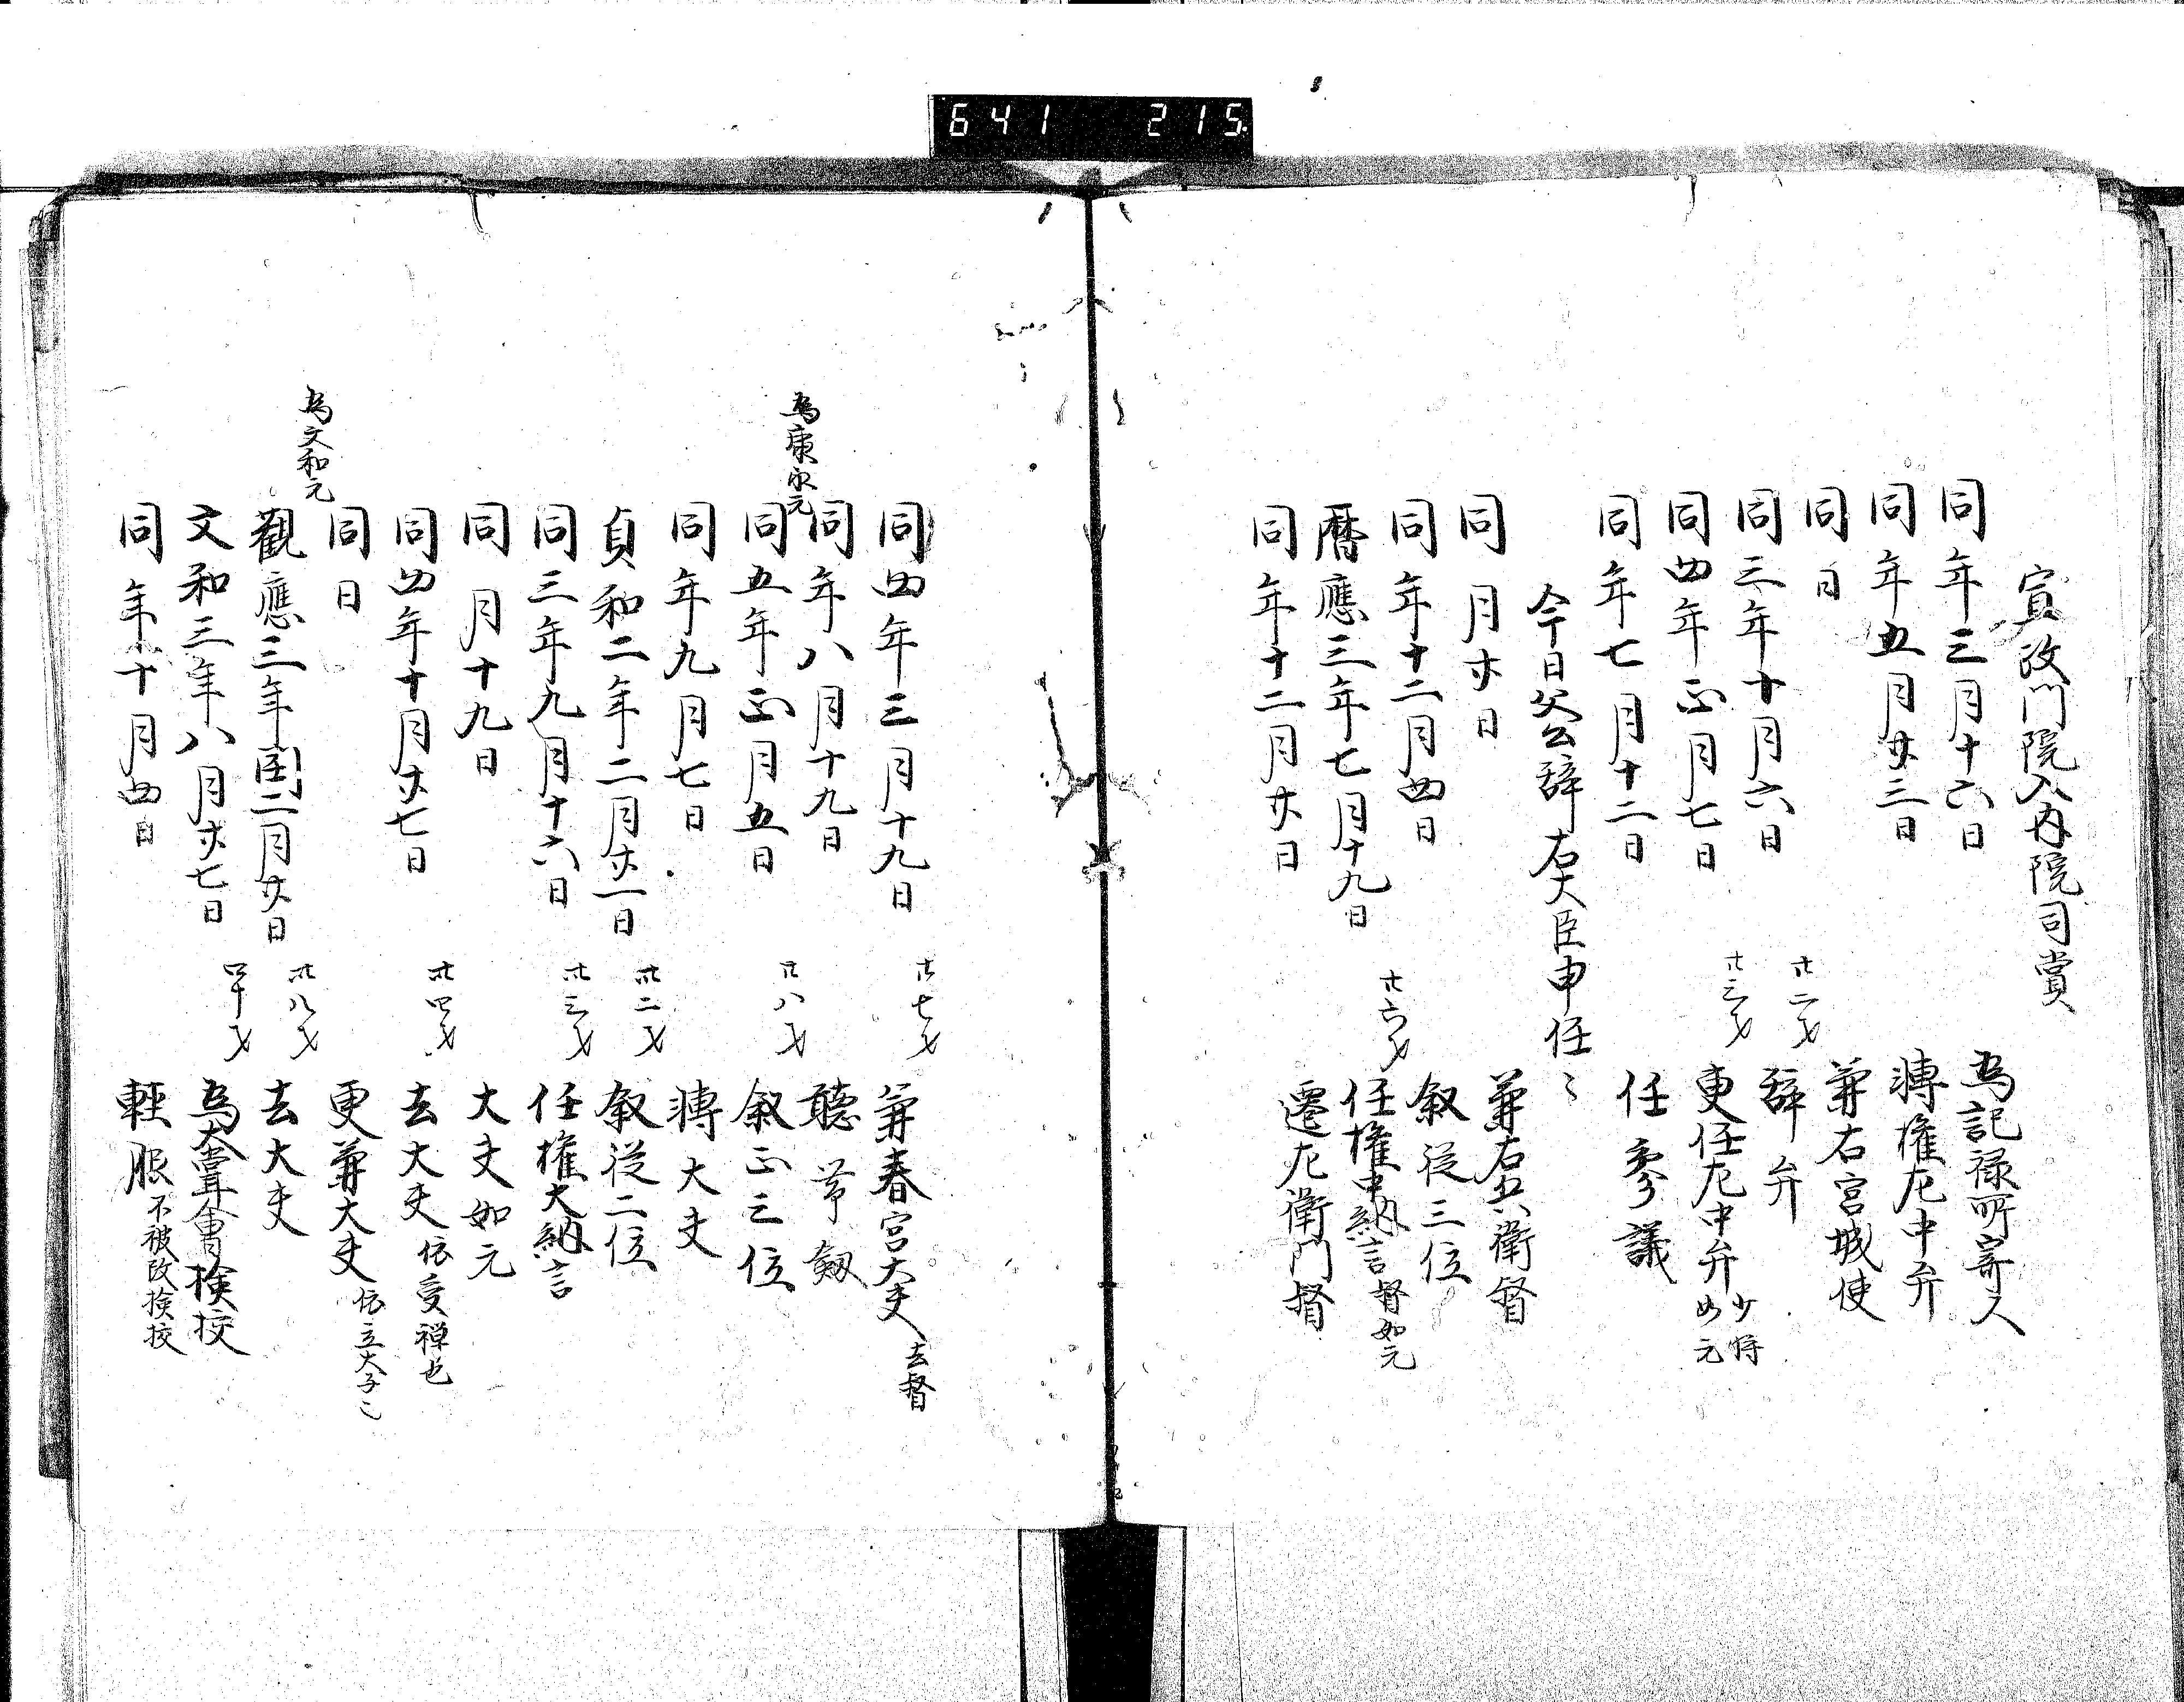 641 215
宣政門院入内院司賞
同年三月十六日 為記禄所寄人
同年五月廿三日 轉權左中弁
同日 兼右宮城使
同三年十月六日 廿二才 辞弁
同四年正月七日 廿三才 更任左中弁 少将如元
同年七月十二日 任参議
今日父公辞右大臣申任〻
同月廿日 兼右兵衛督
同年十二月四日 叙従三位
暦應三年七月十九日 廿六才 任權中納言 督如元
同年十二月廿日 遷左衛門督
同四年三月十九日 廿七才 兼春宮大夫 去督
同年八月十九日 聴帯劔
為康永元
同五年正月五日 廿八才 叙正三位
同年九月七日 轉大夫
貞和二年二月廿一日 卅二才 叙従二位
同三年九月十六日 卅三才 任權大納言
同月十九日 大夫如元
同四年十月廿七日 卅四才 去大夫 依受禅也
同日 更兼大夫 依立太子也
為文和元
觀應三年閏二月廿日 卅八才 去大夫
文和三年八月廿七日 四十才 為大嘗會検挍
同年十月四日 輕服 不被改検挍